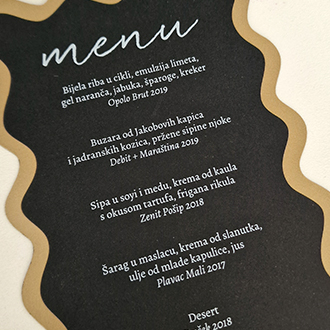 menu
Bijela riba u cikli, emulzija limeta,
gel naranča, jabuka, šparoge, kreker
Opolo Brut 2019
Buzara od Jakobovih kapica
i jadranskih kozica, pržene sipine njoke
Debit + Maraština 2019
Sipa u soyi i medu, krema od kaula
s okusom tartufa, frigana rikula
Zenit Pošip 2018
Šarag u maslacu, krema od slanutka,
ulje od mlade kapulice, jus
Plavac Mali 2017
Desert
2018